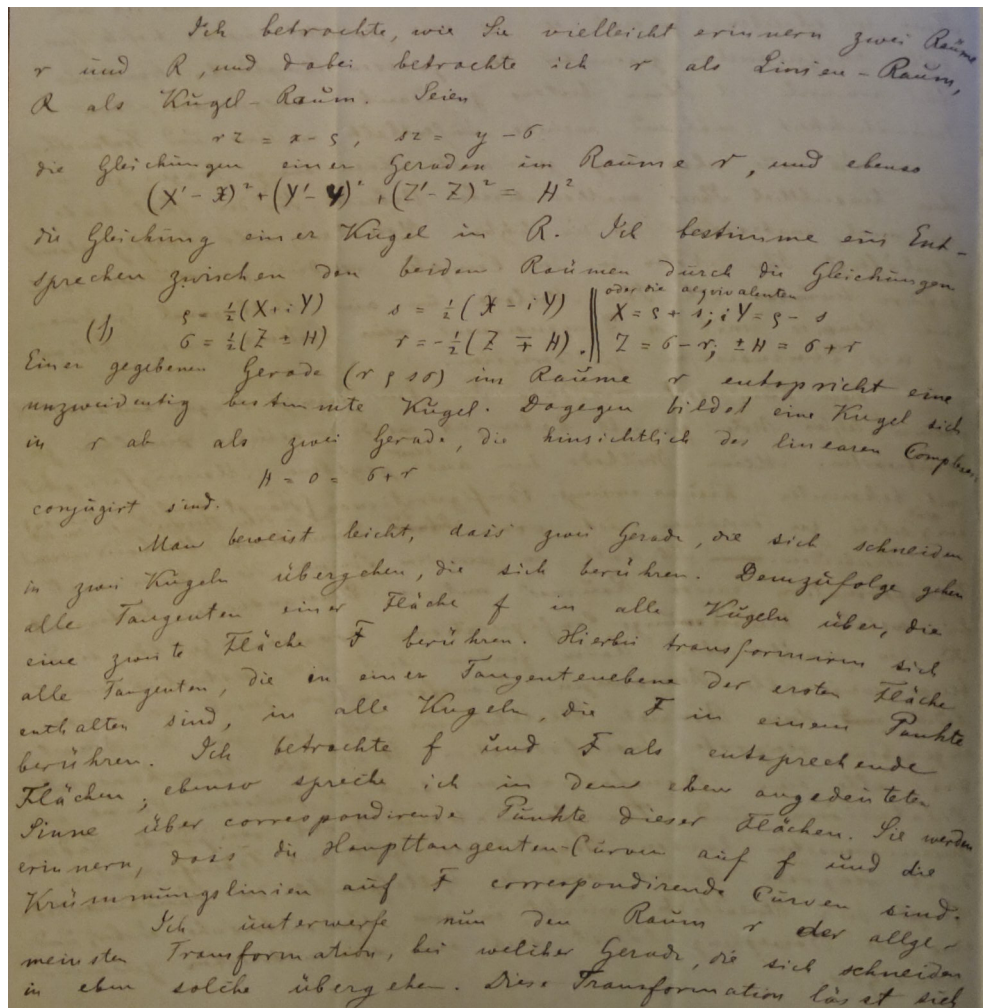 Ich betrachte, wie Sie vielleicht erinnern zwei Räume
r und R, und dabei betrachte ich r als Linien-Raum,
R als Kugel-Raum. Seien
rz = x-ς, sz = y-σ
die Gleichungen einer Geraden im Raume r, und ebenso
(X'-X)² + (Y'-Y)² + (Z'-Z)² = H²
die Gleichung einer Kugel in R. Ich bestimme ein Ent-
sprechen zwischen den beiden Räumen durch die Gleichungen
oder die aequivalenten
ς = ½(X+iY) s = ½(X-iY) || X = ς+s; iY = ς-s
(1) σ = ½(Z±H) r = -½(Z∓H). || Z = σ-r; ±H = σ+r
Einer gegebenen Gerade (r ς s σ) im Raume r entspricht eine
unzweideutig bestimmte Kugel. Dagegen bildet eine Kugel sich
in r ab als zwei Gerade, die hinsichtlich des linearen Complexes
H = 0 = σ+r
conjugirt sind.
Man beweist leicht, dass zwei Gerade, die sich schneiden
in zwei Kugeln übergehen, die sich berühren. Demzufolge gehen
alle Tangenten einer Fläche f in alle Kugeln über, die
eine zweite Fläche F berühren. Hierbei transformiren sich
alle Tangenten, die in einer Tangentenebene der ersten Fläche
enthalten sind, in alle Kugeln, die F in einem Punkte
berühren. Ich betrachte f und F als entsprechende
Flächen; ebenso spreche ich in dem eben angedeuteten
Sinne über correspondirende Punkte dieser Flächen. Sie werden
erinnern, dass die Haupttangenten-Curven auf f und die
Krümmungslinien auf F correspondirende Curven sind.
Ich unterwerfe nun den Raum r der allge-
meinsten Transformation, bei welcher Gerade, die sich schneiden
in eben solche übergehen. Diese Transformation lässt sich